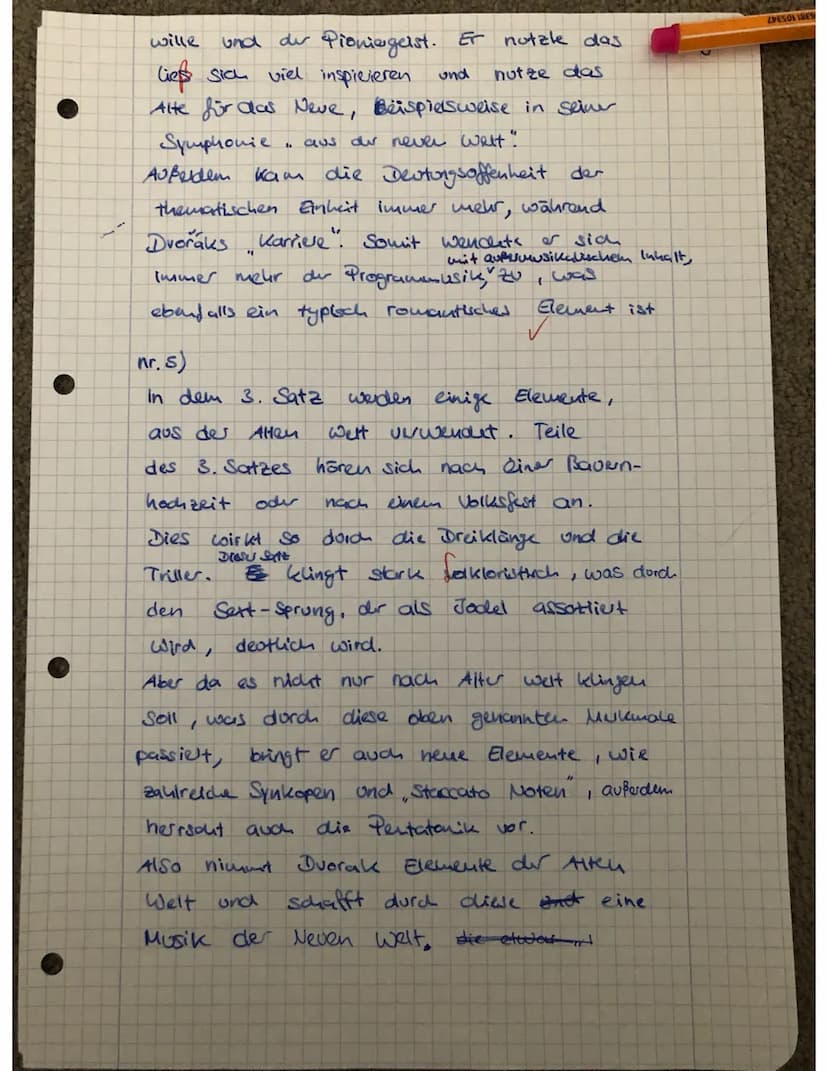 wille und der Pioniergeist. Er nutzte das
ließ sich viel inspirieren und nutze das
Alte für das Neue, Beispielsweise in seiner
Symphonie „aus der neuen Welt".
Außerdem kam die Deutungsoffenheit der
thematischen Einheit immer mehr, während
Dvořáks „Karriere". Somit wendete er sich
mit außermusikalischem Inhalt,
immer mehr der Programmusik, zu, was
ebenfalls ein typisch romantisches Element ist
nr. 5)
In dem 3. Satz werden einige Elemente,
aus der Alten Welt verwendet. Teile
des 3. Satzes hören sich nach einer Bauern-
hochzeit oder nach einem Volksfest an.
Dies wirkt so durch die Dreiklänge und die
Dieser Satz
Triller. klingt stark folkloristisch, was durch
den Sext-Sprung, der als Jodel assoziiert
wird, deutlich wird.
Aber da es nicht nur nach Alter Welt klingen
soll, was durch diese oben genannten Merkmale
passiert, bringt er auch neue Elemente, wie
zahlreiche Synkopen und „Staccato Noten", außerdem
herrscht auch die Pentatonik vor.
Also nimmt Dvorak Elemente der Alten
Welt und schafft durch diese eine
Musik der Neuen Welt.